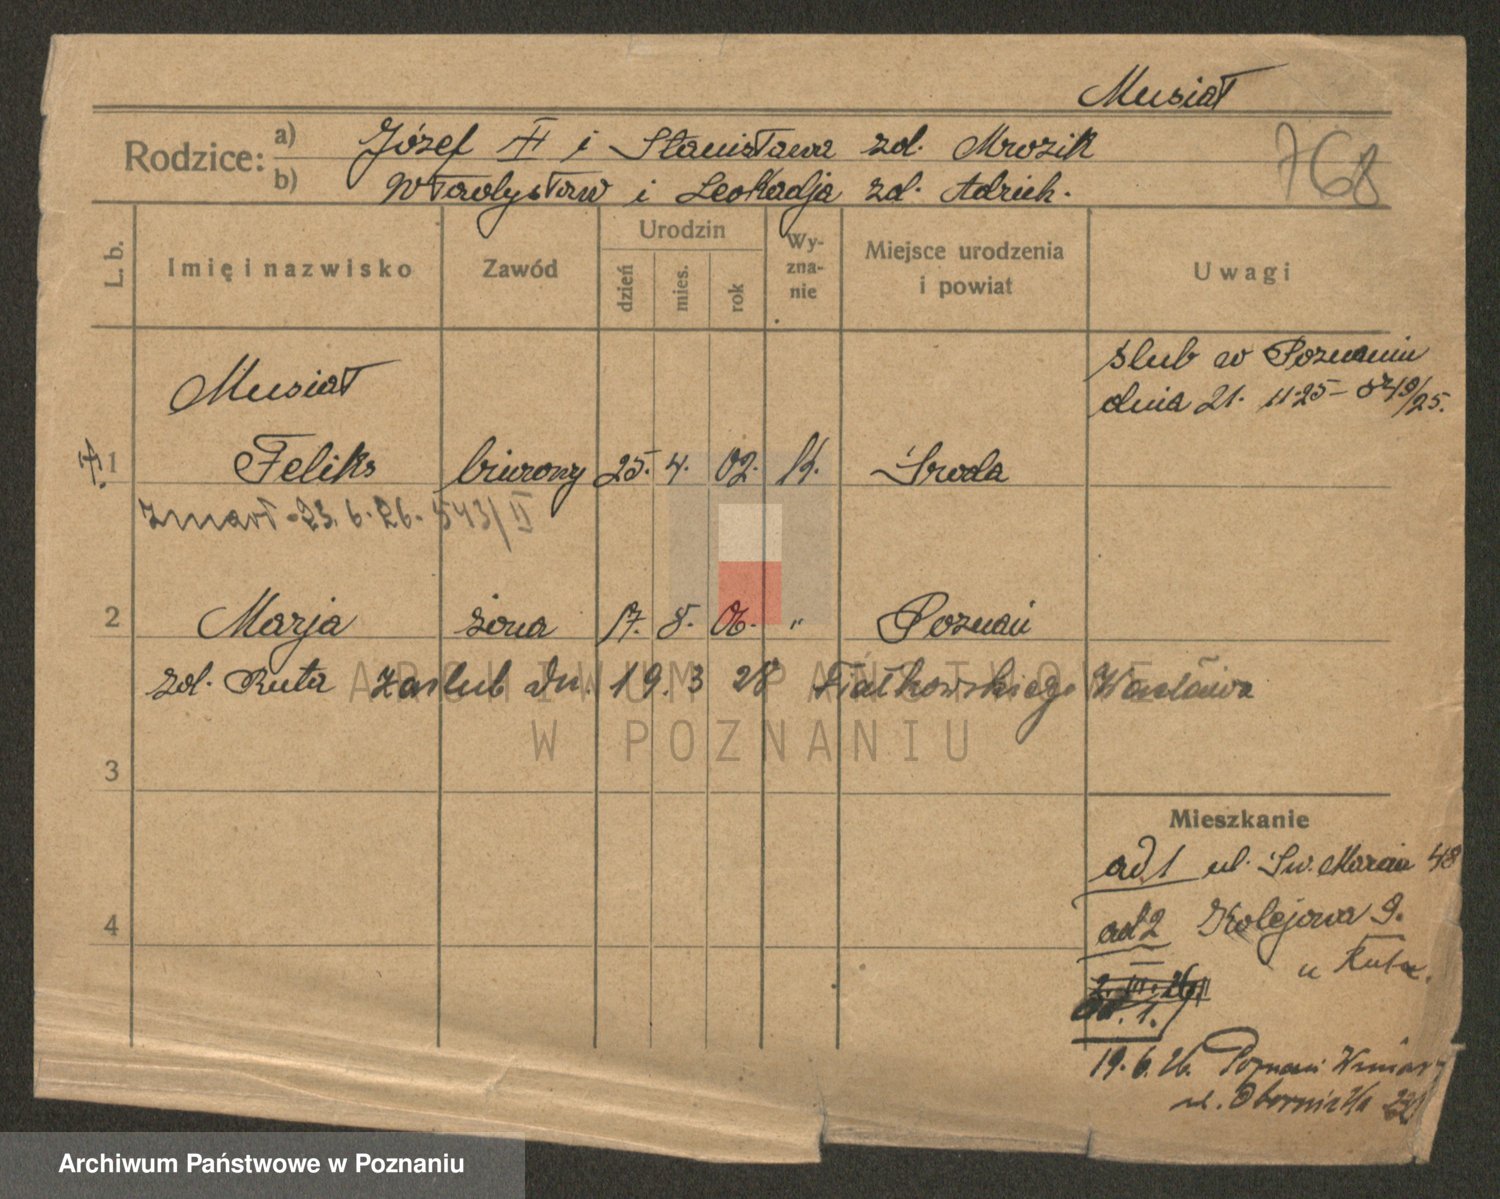 Musiał
Rodzice: a) Józef II i Stanisława zd. Mrozik
b) Władysław i Leokadja zd. Adrich.
768
L. b.
Imię i nazwisko
Zawód
Urodzin
dzień
mies.
rok
Wy-
zna-
nie
Miejsce urodzenia
i powiat
Uwagi
ślub w Poznaniu
dnia 21. 11.25 /25.
Musiał
1 Feliks biurowy 25. 4. 02. k. Środa
zmarł 23. 6. 26. 543/II
2 Marja żona 17. 8. 06. " Poznań
zd. Ruta zaślub dn. 19. 3 28 Fiałkowskiego Wacława
3
4
Mieszkanie
ad 1 ul. Św. Marcin 48
ad 2 Kolejowa 9.
u Ruta.
2. III. 26
ad. 1.
19. 6. 26. Poznań Winiar
ul. Obornicka
ARCHIWUM PAŃSTWOWE
W POZNANIU
Archiwum Państwowe w Poznaniu